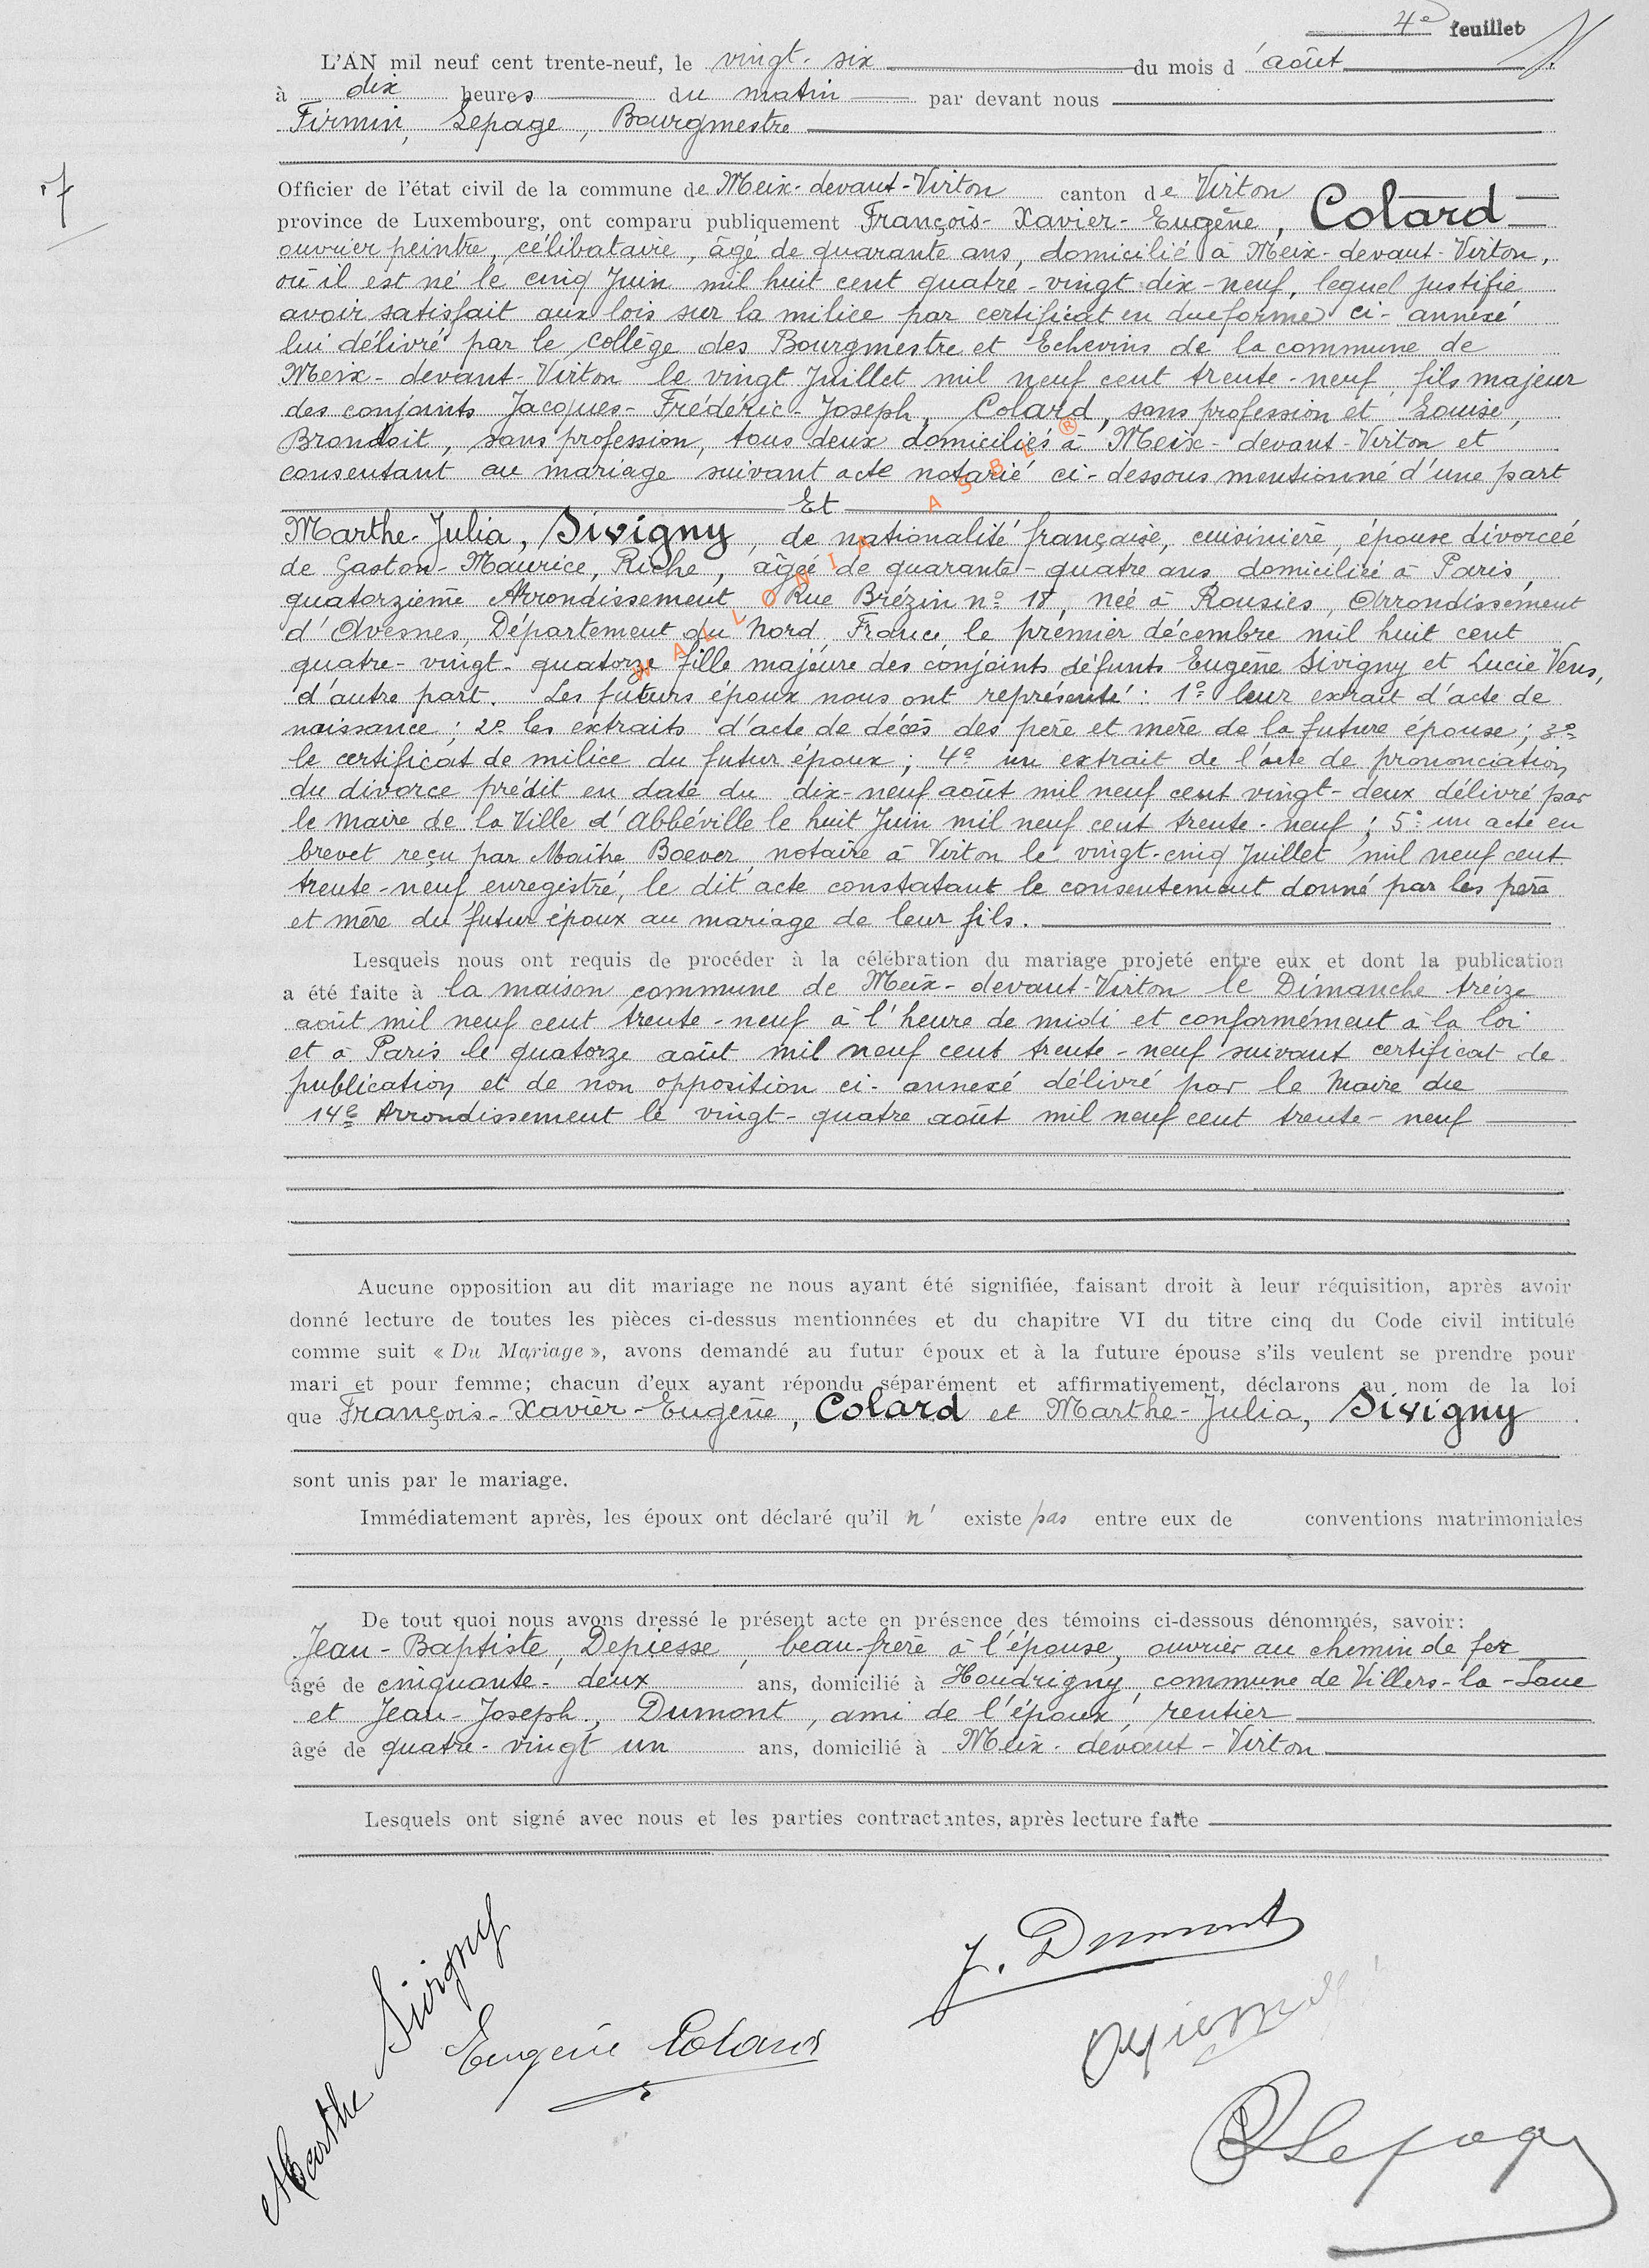 4e feuillet
L'AN mil neuf cent trente-neuf, le vingt-six du mois d'août
à dix heures du matin par devant nous
Firmin, Lepage, Bourgmestre
Officier de l'état civil de la commune de Meix-devant-Virton canton de Virton
province de Luxembourg, ont comparu publiquement François-Xavier-Eugène, Colard
ouvrier peintre, célibataire, âgé de quarante ans, domicilié à Meix-devant-Virton,
où il est né le cinq Juin mil huit cent quatre-vingt dix-neuf, lequel justifie
avoir satisfait aux lois sur la milice par certificat en due forme ci-annexé
lui délivré par le collège des Bourgmestre et Echevins de la commune de
Meix-devant-Virton le vingt Juillet mil neuf cent trente-neuf fils majeur
des conjoints Jacques-Frédéric-Joseph, Colard, sans profession et Louise,
sans profession, tous deux domiciliés à Meix-devant-Virton et
consentant au mariage suivant acte notarié ci-dessous mentionné d'une part
Et
Marthe-Julia, Sivigny, de nationalité française, cuisinière, épouse divorcée
de Gaston-Maurice, Riche, âgée de quarante-quatre ans, domiciliée à Paris,
quatorzième Arrondissement, Rue Brézin n° 18, née à Rousies, Arrondissement
d'Avesnes, Département du Nord, France, le premier décembre mil huit cent
quatre-vingt-quatorze fille majeure des conjoints défunts Eugène Sivigny et Lucie Vens,
d'autre part. Les futurs époux nous ont représenté : 1° leur extrait d'acte de
naissance ; 2° les extraits d'acte de décès des père et mère de la future épouse ; 3°
le certificat de milice du futur époux ; 4° un extrait de l'acte de prononciation
du divorce prédit en date du dix-neuf août mil neuf cent vingt-deux délivré par
le maire de la Ville d'Abbéville le huit Juin mil neuf cent trente-neuf ; 5° un acte en
brevet reçu par Maître Boever notaire à Virton le vingt-cinq Juillet mil neuf cent
trente-neuf enregistré, le dit acte constatant le consentement donné par les père
et mère du futur époux au mariage de leur fils.
Lesquels nous ont requis de procéder à la célébration du mariage projeté entre eux et dont la publication
a été faite à la maison commune de Meix-devant-Virton le Dimanche treize
août mil neuf cent trente-neuf à l'heure de midi et conformément à la loi
et à Paris le quatorze août mil neuf cent trente-neuf suivant certificat de
publication et de non opposition ci-annexé délivré par le Maire du
14e Arrondissement le vingt-quatre août mil neuf cent trente-neuf
Aucune opposition au dit mariage ne nous ayant été signifiée, faisant droit à leur réquisition, après avoir
donné lecture de toutes les pièces ci-dessus mentionnées et du chapitre VI du titre cinq du Code civil intitulé
comme suit « Du Mariage », avons demandé au futur époux et à la future épouse s'ils veulent se prendre pour
mari et pour femme; chacun d'eux ayant répondu séparément et affirmativement, déclarons au nom de la loi
que François-Xavier-Eugène, Colard et Marthe-Julia, Sivigny
sont unis par le mariage.
Immédiatement après, les époux ont déclaré qu'il n'existe pas entre eux de conventions matrimoniales
De tout quoi nous avons dressé le présent acte en présence des témoins ci-dessous dénommés, savoir:
Jean-Baptiste, Depiesse, beau-frère à l'épouse, ouvrier au chemin de fer
âgé de cinquante-deux ans, domicilié à Houdrigny, commune de Villers-la-Loue
et Jean-Joseph, Dumont, ami de l'époux, rentier
âgé de quatre-vingt un ans, domicilié à Meix-devant-Virton
Lesquels ont signé avec nous et les parties contractantes, après lecture faite
Marthe Sivigny
Eugène Colard
J. Dumont
Lepage
WALLONIA ASBL ®